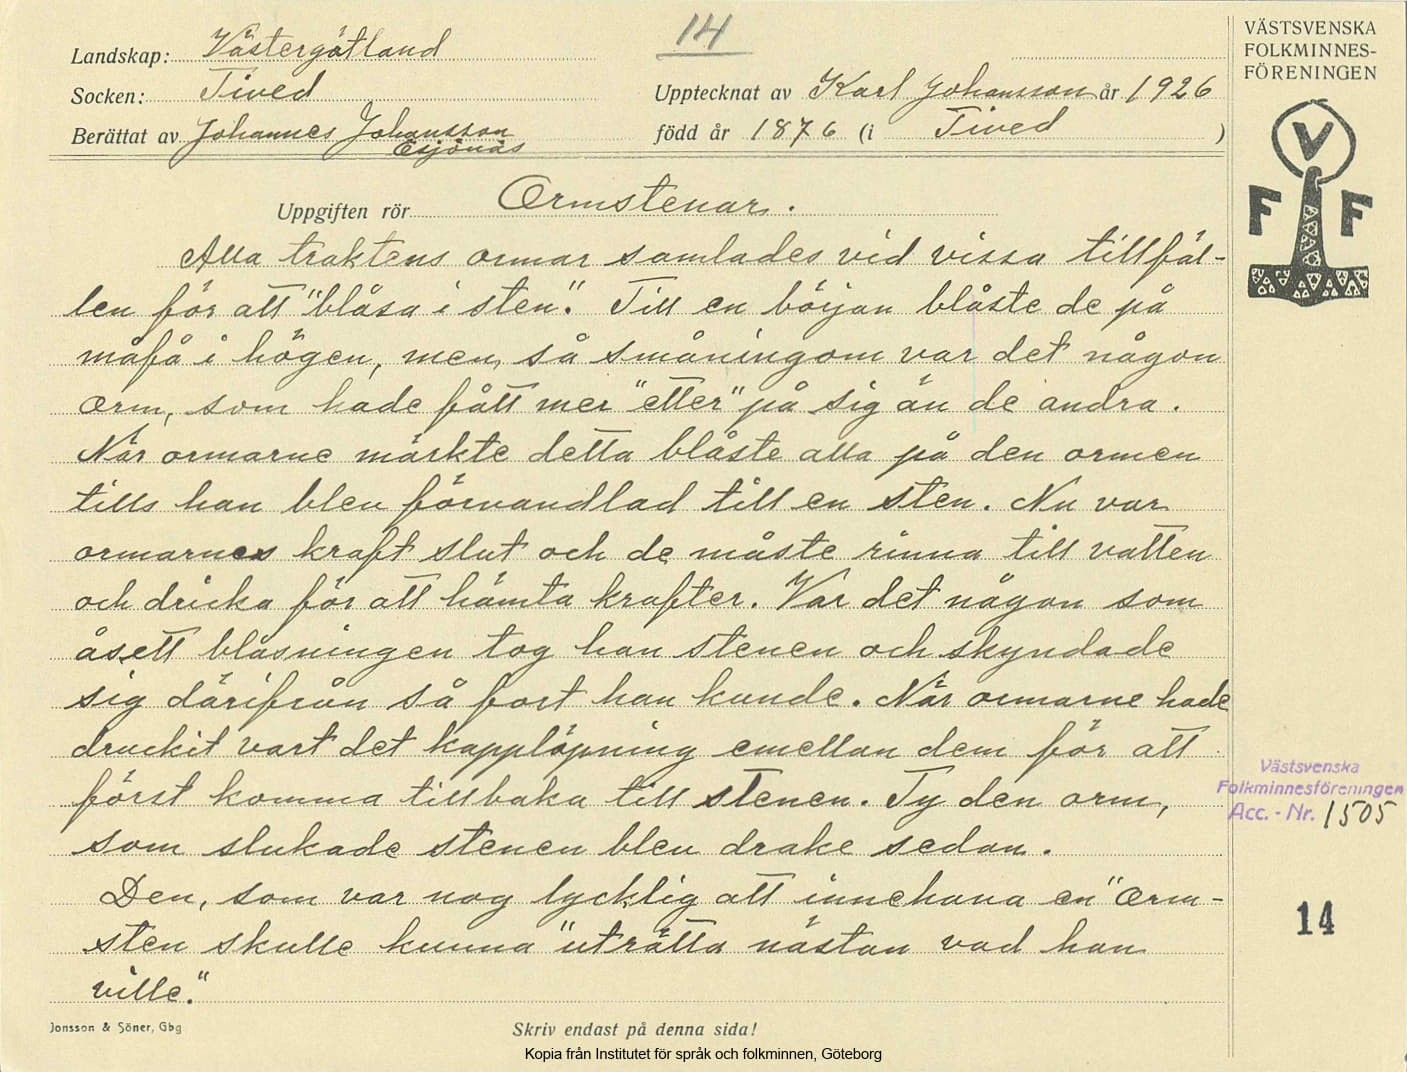 14
Landskap: Västergötland
Socken: Tived
Upptecknat av Karl Johansson år 1926
Berättat av Johannes Johansson
Esjönäs
född år 1876 (i Tived )
VÄSTSVENSKA
FOLKMINNES-
FÖRENINGEN
V
F F
Uppgiften rör Ormstenar.
Alla traktens ormar samlades vid vissa tillfäl-
len för att "blåsa i sten". Till en början blåste de på
måfå i högen, men, så småningom var det någon
orm, som hade fått mer "etter" på sig än de andra.
När ormarne märkte detta blåste alla på den ormen
tills han blev förvandlad till en sten. Nu var
ormarnes kraft slut och de måste rinna till vatten
och dricka för att hämta krafter. Var det någon som
åsett blåsningen tog han stenen och skyndade
sig därifrån så fort han kunde. När ormarne hade
druckit vart det kapplöpning emellan dem för att
först komma tillbaka till stenen. Ty den orm,
som slukade stenen blev drake sedan.
Den, som var nog lycklig att innehava en "Orm-
sten skulle kunna "uträtta nästan vad han
ville."
Västsvenska
Folkminnesföreningen
Acc. - Nr. 1505
14
Jonsson & Söner, Gbg
Skriv endast på denna sida!
Kopia från Institutet för språk och folkminnen, Göteborg